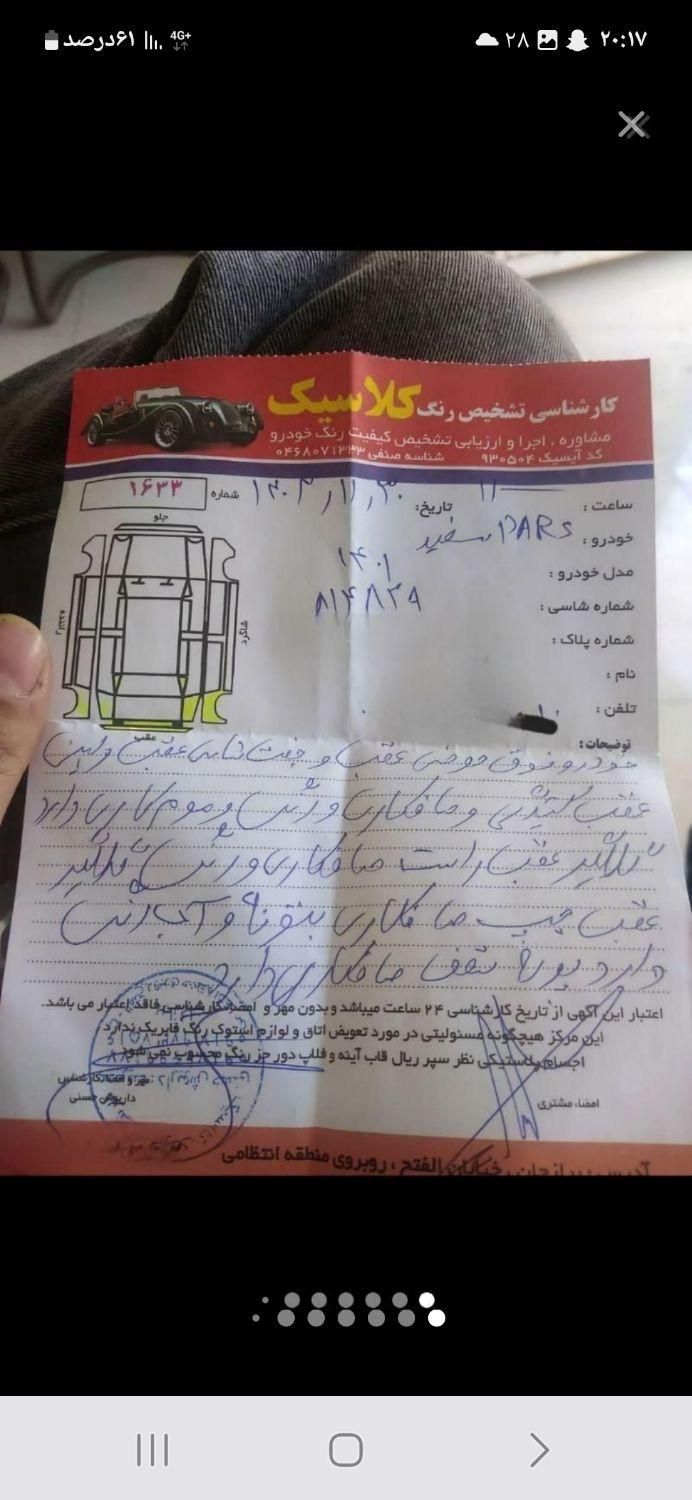 ۲۰:۱۷
۲۸
4G+
۶۱درصد
کارشناسی تشخیص رنگ کلاسیک
مشاوره ، اجرا و ارزیابی تشخیص کیفیت رنگ خودرو
کد آیسیک ۹۳۰۵۰۴ شناسه صنفی ۰۴۶۸۰۷۱۳۳۳
ساعت : ۱۱
تاریخ:
شماره ۱۶۳۳
جلو
خودرو : PARS سفید
مدل خودرو : ۱۴۰۱
شماره شاسی : ۸۱۴۸۲۹
شماره پلاک :
نام :
تلفن :
شاگرد
عقب
توضیحات :
خودرو فوق حوضی عقب و جفت شاسی عقب و
عقب و صافکاری و رنگ و موم کاری دارد
گلگیر عقب راست صافکاری و رنگ گلگیر
عقب چپ صافکاری بتونه و
دارد صافکاری دارد
اعتبار این آگهی از تاریخ کارشناسی ۲۴ ساعت میباشد و بدون مهر و امضاء کارشناسی فاقد اعتبار می باشد.
این مرکز هیچگونه مسئولیتی در مورد تعویض اتاق و لوازم استوک رنگ فابریک ندارد
اجسام پلاستیکی نظر سپر ریال قاب آینه و فلاپ دور جز رنگ محسوب نمی شود
مهر و امضاء کارشناس
داریوش حسنی
امضاء مشتری
آدرس: خیابان الفتح ، روبروی منطقه انتظامی